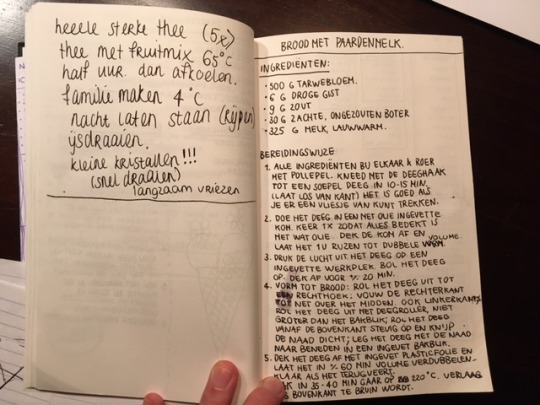 heeele sterke thee (5x)
thee met fruitmix 65°C
half uur. dan afkoelen.
familie maken 4°C
nacht laten staan (rijpen)
ijsdraaien.
kleine kristallen!!!
(snel draaien)
langzaam vriezen
BROOD MET PAARDENMELK.
INGREDIËNTEN:
• 500 G TARWEBLOEM.
• 6 G DROGE GIST
• 9 G ZOUT
• 30 G ZACHTE, ONGEZOUTEN BOTER
• 325 G MELK, LAUWWARM.
BEREIDINGSWIJZE
1. ALLE INGREDIËNTEN BIJ ELKAAR & ROER
MET POLLEPEL. KNEED MET DE DEEGHAAK
TOT EEN SOEPEL DEEG IN 10-15 MIN.
(LAAT LOS VAN KANT) HET IS GOED ALS
JE ER EEN VLIESJE VAN KUNT TREKKEN.
2. DOE HET DEEG IN EEN MET OLIE INGEVETTE
KOM. KEER 1X ZODAT ALLES BEDEKT IS
MET WAT OLIE. DEK DE KOM AF EN
LAAT HET 1 U RIJZEN TOT DUBBELE VOLUME.
3. DRUK DE LUCHT UIT HET DEEG OP EEN
INGEVETTE WERKPLEK. BOL HET DEEG
OP. DEK AF VOOR 20 MIN.
4. VORM TOT BROOD: ROL HET DEEG UIT TOT
RECHTHOEK; VOUW DE RECHTERKANT
TOT NET OVER HET MIDDEN. OOK LINKERKANT.
ROL HET DEEG UIT MET DEEGROLLER, NIET
GROTER DAN HET BAKBLIK; ROL HET DEEG
VANAF DE BOVENKANT STEVIG OP EN KNIJP
DE NAAD DICHT; LEG HET DEEG MET DE NAAD
NAAR BENEDEN IN EEN INGEVET BAKBLIK.
5. DEK HET DEEG AF MET INGEVET PLASTICFOLIE EN
LAAT HET IN 60 MIN VOLUME VERDUBBELEN.
KLAAR ALS HET TERUGVEERT.
IN 35-40 MIN GAAR OP 220°C. VERLAAG
ALS BOVENKANT TE BRUIN WORDT.